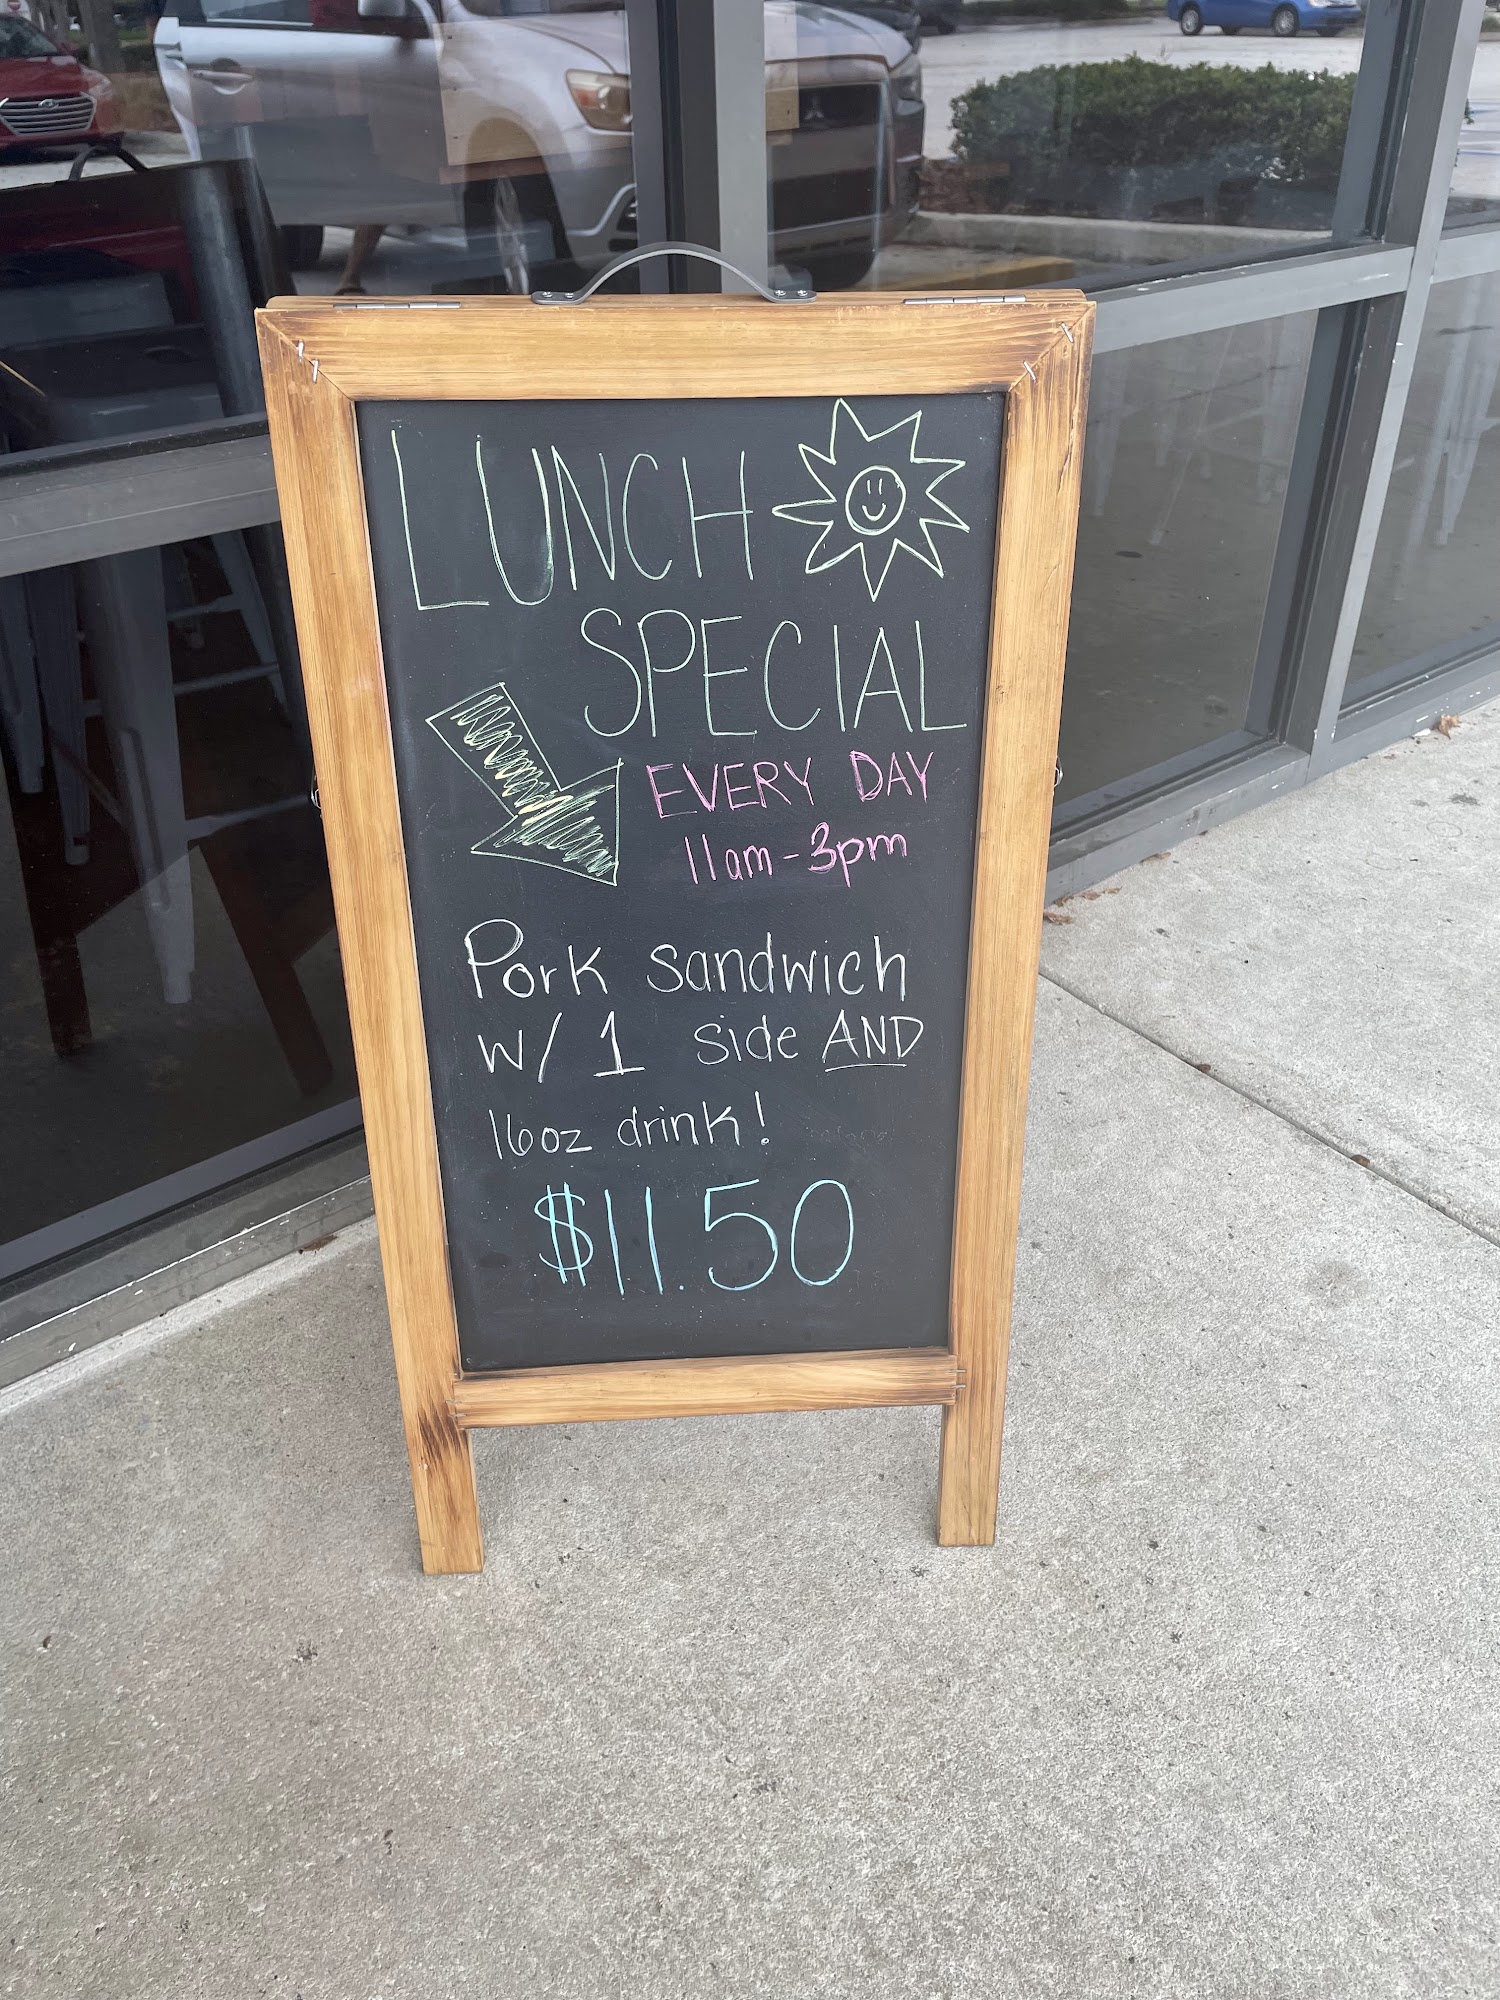 LUNCH
SPECIAL
EVERY DAY
11am - 3pm
Pork sandwich
w/ 1 side AND
16oz drink!
$11.50